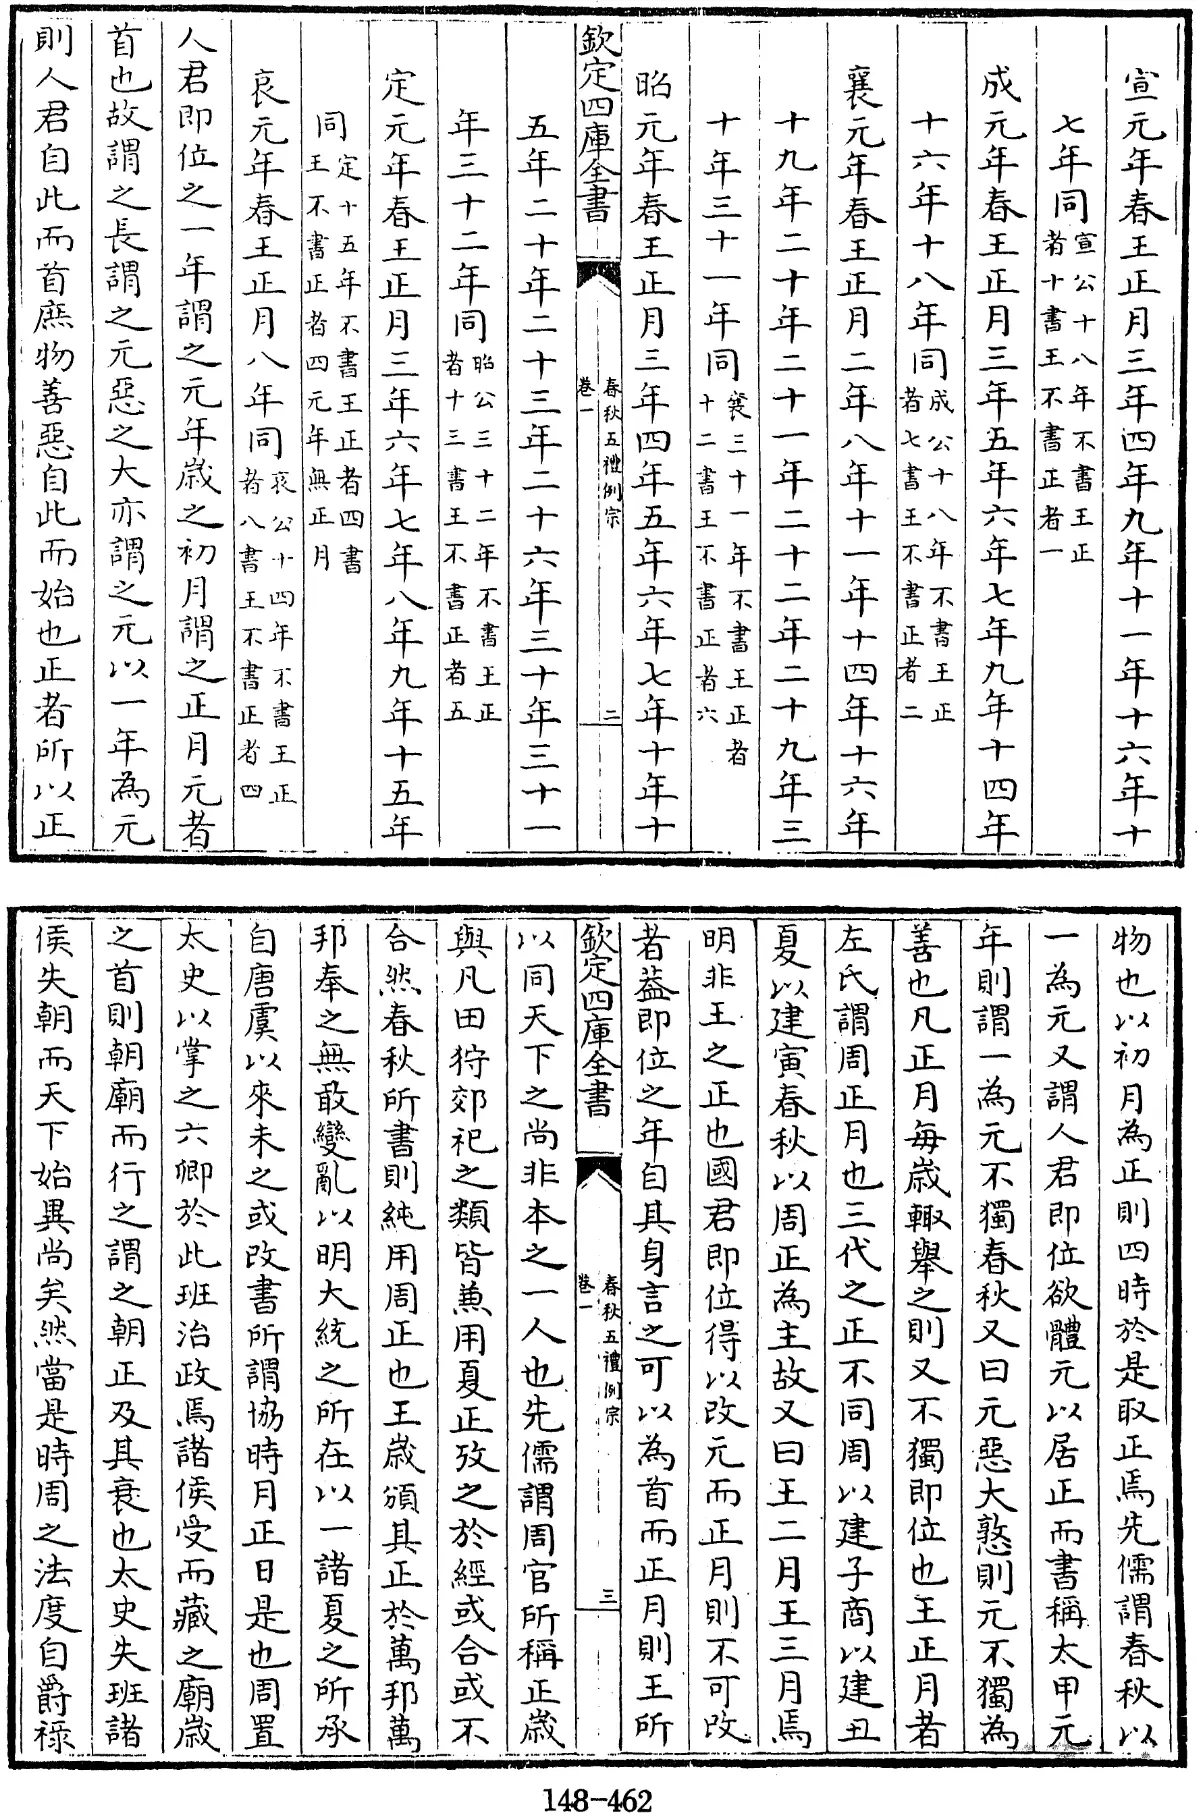 宣元年春王正月三年四年九年十一年十六年十
七年同宣公十八年不書王正
者十書王不書正者一
成元年春王正月三年五年六年七年九年十四年
十六年十八年同成公十八年不書王正
者七書王不書正者二
襄元年春王正月二年八年十一年十四年十六年
十九年二十年二十一年二十二年二十九年三
十年三十一年同襄三十一年不書王正者
十二書王不書正者六
昭元年春王正月三年四年五年六年七年十年十
欽定四庫全書
春秋五禮例宗
卷一
二
五年二十年二十三年二十六年三十年三十一
年三十二年同昭公三十二年不書王正
者十三書王不書正者五
定元年春王正月三年六年七年八年九年十五年
同定十五年不書王正者四書
王不書正者四元年無正月
哀元年春王正月八年同哀公十四年不書王正
者八書王不書正者四
人君即位之一年謂之元年歳之初月謂之正月元者
首也故謂之長謂之元惡之大亦謂之元以一年為元
則人君自此而首庶物善惡自此而始也正者所以正
物也以初月為正則四時於是取正焉先儒謂春秋以
一為元又謂人君即位欲體元以居正而書稱太甲元
年則謂一為元不獨春秋又曰元惡大憝則元不獨為
善也凡正月每歳輙舉之則又不獨即位也王正月者
左氏謂周正月也三代之正不同周以建子商以建丑
夏以建寅春秋以周正為主故又曰王二月王三月焉
明非王之正也國君即位得以改元而正月則不可改
者葢即位之年自其身言之可以為首而正月則王所
欽定四庫全書
春秋五禮例宗
卷一
三
以同天下之尚非本之一人也先儒謂周官所稱正歳
與凡田狩郊祀之類皆兼用夏正攷之於經或合或不
合然春秋所書則純用周正也王歳頒其正於萬邦萬
邦奉之無敢變亂以明大統之所在以一諸夏之所承
自唐虞以來未之或改書所謂協時月正日是也周置
太史以掌之六卿於此班治政焉諸侯受而藏之廟歳
之首則朝廟而行之謂之朝正及其衰也太史失班諸
侯失朝而天下始異尚矣然當是時周之法度自爵祿
148-462